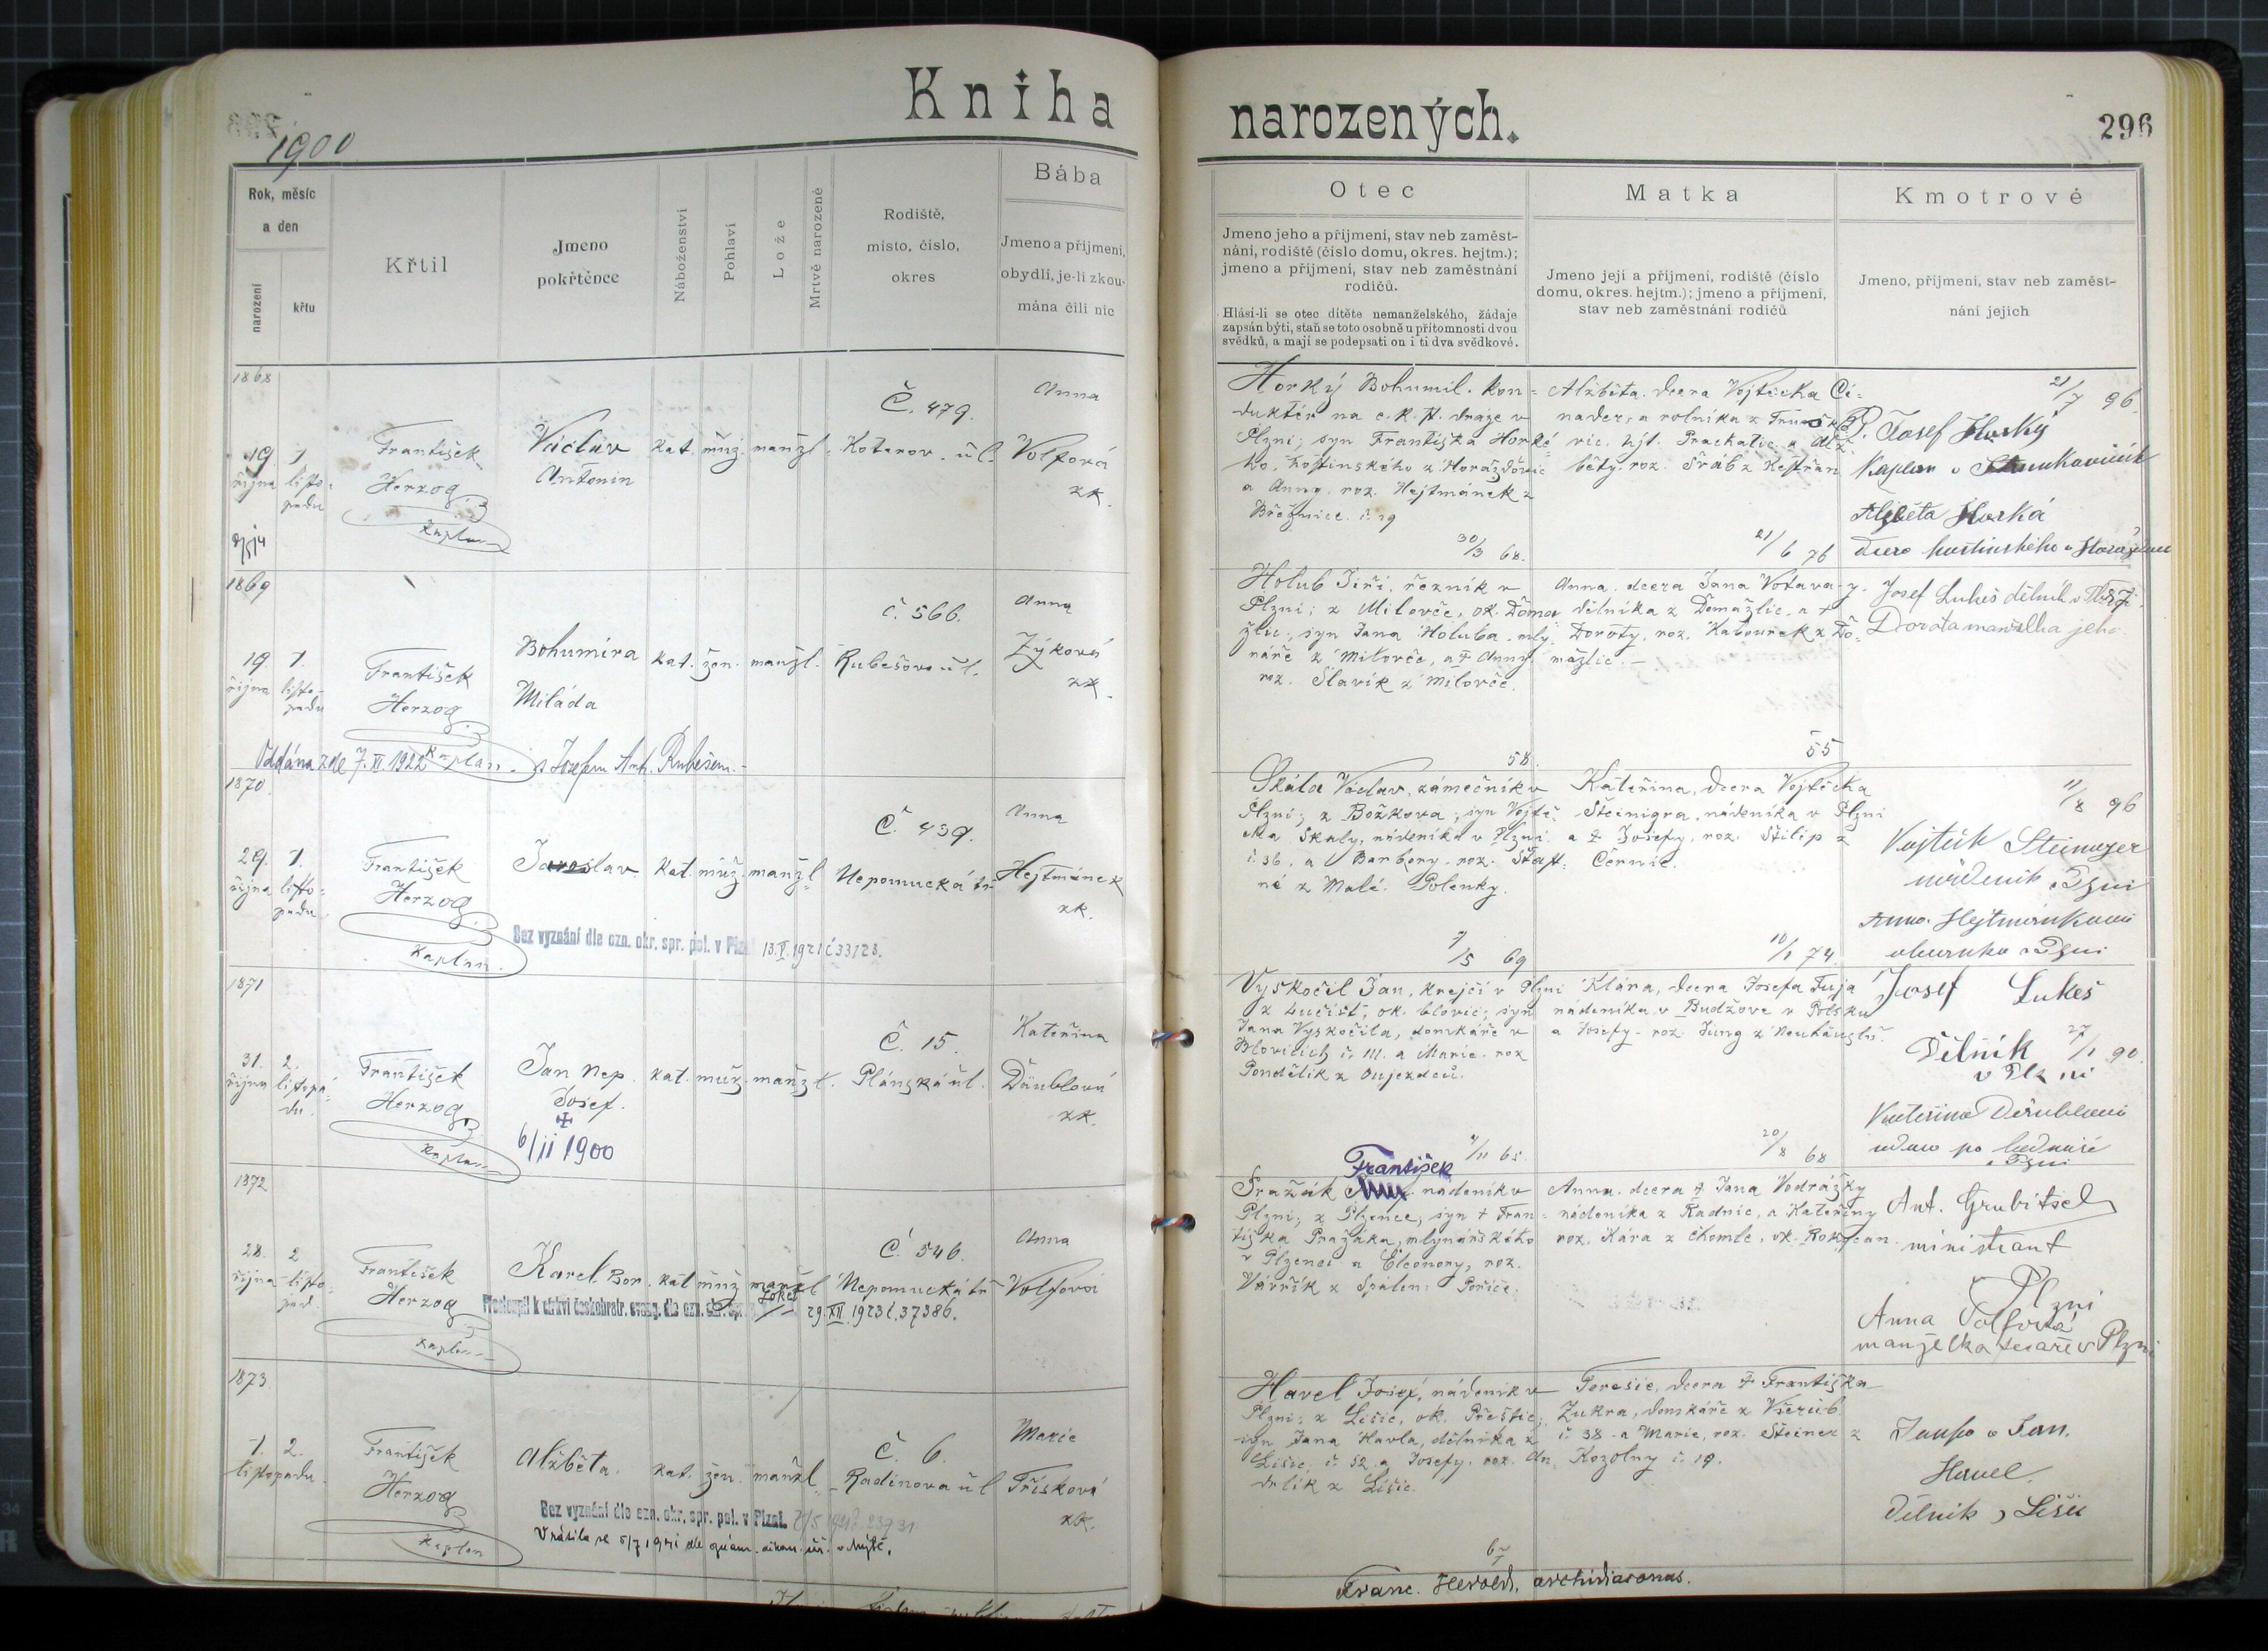 Kniha
1900
Rok, měsíc
a den
narození
křtu
Křtil
Jmeno
pokřtěnce
Náboženství
Pohlaví
Lože
Mrtvě narozené
Rodiště,
místo, číslo,
okres
Bába
Jmeno a příjmení,
obydlí, je-li zkou-
mána čili nic
1868
19. 1.
října listo-
padu
František
Herzog
kaplan
Václav
Antonín
kat. muž. manžl.
Č. 479.
Koterov. ul.
Anna
Volfová
zk.
1869
19. 1.
října listo-
padu
František
Herzog
kaplan
Bohumíra
Miláda
kat. žen. manžl.
č. 566.
Rubešova ul.
Anna
Zýková
zk.
Oddána zde 7. XI. 1922 s Josefem Ant. Rubešem.
1870.
29. 1.
října listo-
padu
František
Herzog
Kaplan.
Jaroslav.
kat. muž. manžl
Č. 439.
Nepomucká tř
Anna
Hejtmánek
zk.
Bez vyznání dle ozn. okr. spr. pol. v Plzni 13. V. 1921 č 33123.
1871
31. 2.
října listopa-
du.
František
Herzog
Kaplan
Jan Nep.
Josef.
6/11 1900
kat. muž. manžl.
Č. 15.
Plánská ul.
Kateřina
Däublová
zk.
1872
28. 2.
října listo-
pad.
František
Herzog
kaplan
Karel Bor.
kat muž manžl
Č. 546.
Nepomucká tř
Anna
Volfová
Přestoupil k církvi českobratr. evang. dle ozn. okr. spr. 29. XII. 1923 č. 37386.
1873
1. 2.
listopadu.
František
Herzog
Kaplan
Alžběta.
kat. žen. manžl.
Č. 6.
Radinova ul
Marie
Třísková
zk.
Bez vyznání dle ozn. okr. spr. pol. v Plzni.
Vrátila se 5/7 1941 dle
narozených.
296
Otec
Jmeno jeho a příjmení, stav neb zaměst-
nání, rodiště (číslo domu, okres. hejtm.);
jmeno a příjmení, stav neb zaměstnání
rodičů.
Hlásí-li se otec dítěte nemanželského, žádaje
zapsán býti, staň se toto osobně u přítomnosti dvou
svědků, a mají se podepsati on i ti dva svědkové.
Matka
Jmeno její a příjmení, rodiště (číslo
domu, okres. hejtm.); jmeno a příjmení,
stav neb zaměstnání rodičů
Kmotrové
Jmeno, příjmení, stav neb zaměst-
nání jejich
Horký Bohumil. kon-
duktér na c. k. st. dráze v
Plzni; syn Františka Horké-
ho, hostinského z Horažďovic
a Anny. roz. Hejtmánek z
Březnice. č. 19
30/3 68.
Alžběta. dcera Vojtěcha Ci-
nadera, rolníka z
hejt. Prachatic, a Alž-
běty. roz. Šráb z Kestřan
21/6 76
21/7 96.
P. Josef Horký
Kaplan v
Alžběta Horká
dcera hostinského v
Holub Jiří, řezník v
Plzni; z Milovče, ok. Doma-
žlic, syn Jana Holuba, mly-
náře z Milovče, a † Anny
roz. Slavík z Milovče.
58.
Anna. dcera Jana Votava
dělníka z Domažlic, a †
Doroty, roz. Kabourek z Do-
mažlic.
55
Josef Lukeš dělník v Plzni
Dorota manželka jeho
Skála Václav, zámečník v
Plzni; z Božkova; syn Vojtě-
cha Skály, nádeníka v Plzni
č. 36, a Barbory. roz. Šťast-
né z Malé. Polenky.
7/5 69
Kateřina, dcera Vojtěcha
Steinigra, nádeníka v Plzni
a † Josefy, roz. Štilip z
Černic.
10/1 74.
11/8 96
Vojtěch Steinager
nádeník v Plzni
Anna. Hejtmánková
v Plzni
Vyskočil Jan, krejčí v Plzni
z Lučišť, ok. blovic; syn
Jana Vyskočila, domkáře v
Blovicích č. 111. a Marie. roz
Pondělík z Oujezdců.
11 65.
Klára, dcera Josefa Fuja
nádeníka, v Budžove v Polsku
a Josefy. roz. Jung z Neuhäuslu.
20/8 68
Josef Lukeš
Dělník 27/1 90.
v Plzni
Kateřina Däublová
vdova po
v Plzni
František
Pražák nádeník v
Plzni; z Plzence, syn † Fran-
tiška Pražáka, mlynářského
v Plzenci a Eleonory, roz.
Vávřík z Spálen. Poříče.
Anna. dcera † Jana Vodrážky
nádeníka z Radnic, a Kateřiny
roz. Kára z Chomle, ok. Rokycan.
Ant. Grubitsch
ministrant
Plzni
Anna Volfová
manželka tesaře v Plzni
Havel Josef, nádeník v
Plzni; z Lišic, ok. Přeštic;
syn Jana Havla, dělníka z
Lišic, č. 52. a Josefy. roz. An-
drlík z Lišic.
Terezie, dcera † Františka
Zukra, domkáře z Všerub.
č. 38. a Marie, roz. Steiner z
Kozolup č. 19.
Jan.
Havel.
Dělník z Lišic
Franc. Herold, archidiaconus.